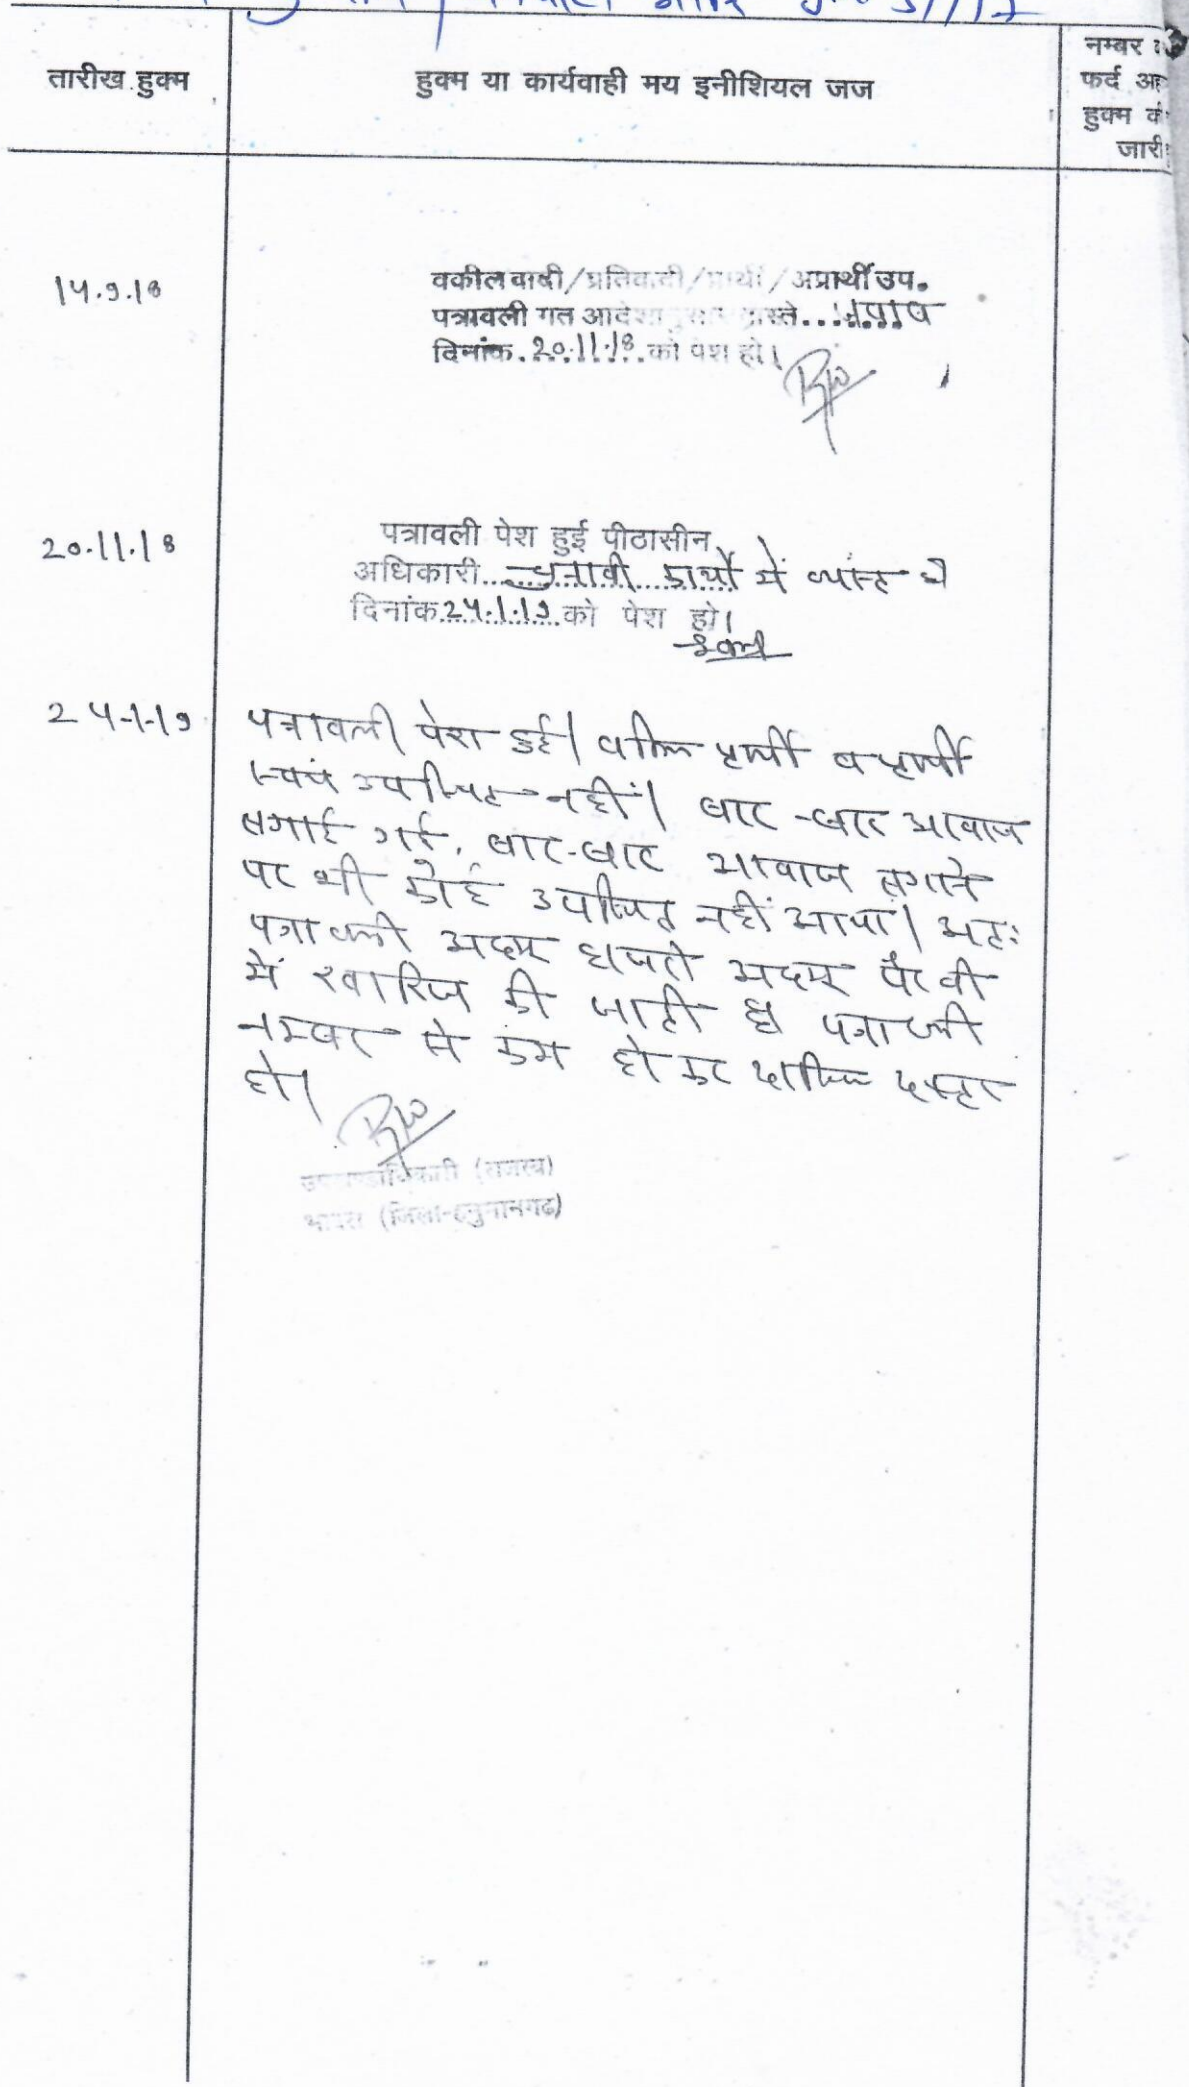 तारीख हुक्म
हुक्म या कार्यवाही मय इनीशियल जज
नम्बर
फर्द अह
हुक्म
जारी
14.9.18
वकील वादी/प्रतिवादी/प्रार्थी/अप्रार्थी उप.
पत्रावली गत आदेशानुसार वास्ते...जवाब
दिनांक.20.11.18.को पेश हो।
20.11.18
पत्रावली पेश हुई पीठासीन
अधिकारी...चुनावी कार्यों में व्यस्त थे
दिनांक.24.1.19.को पेश हो।
24-1-19
पत्रावली पेश हुई। वकील प्रार्थी व प्रार्थी
स्वयं उपस्थित नहीं। बार-बार आवाज
लगाई गई, बार-बार आवाज लगाने
पर भी कोई उपस्थित नहीं आया। अतः
पत्रावली अदम हाजरी अदम पैरवी
में खारिज की जाती है पत्रावली
नम्बर से कम हो कर दाखिल दफ्तर
हो।
उपखण्डाधिकारी (राजस्व)
भादरा (जिला-हनुमानगढ)